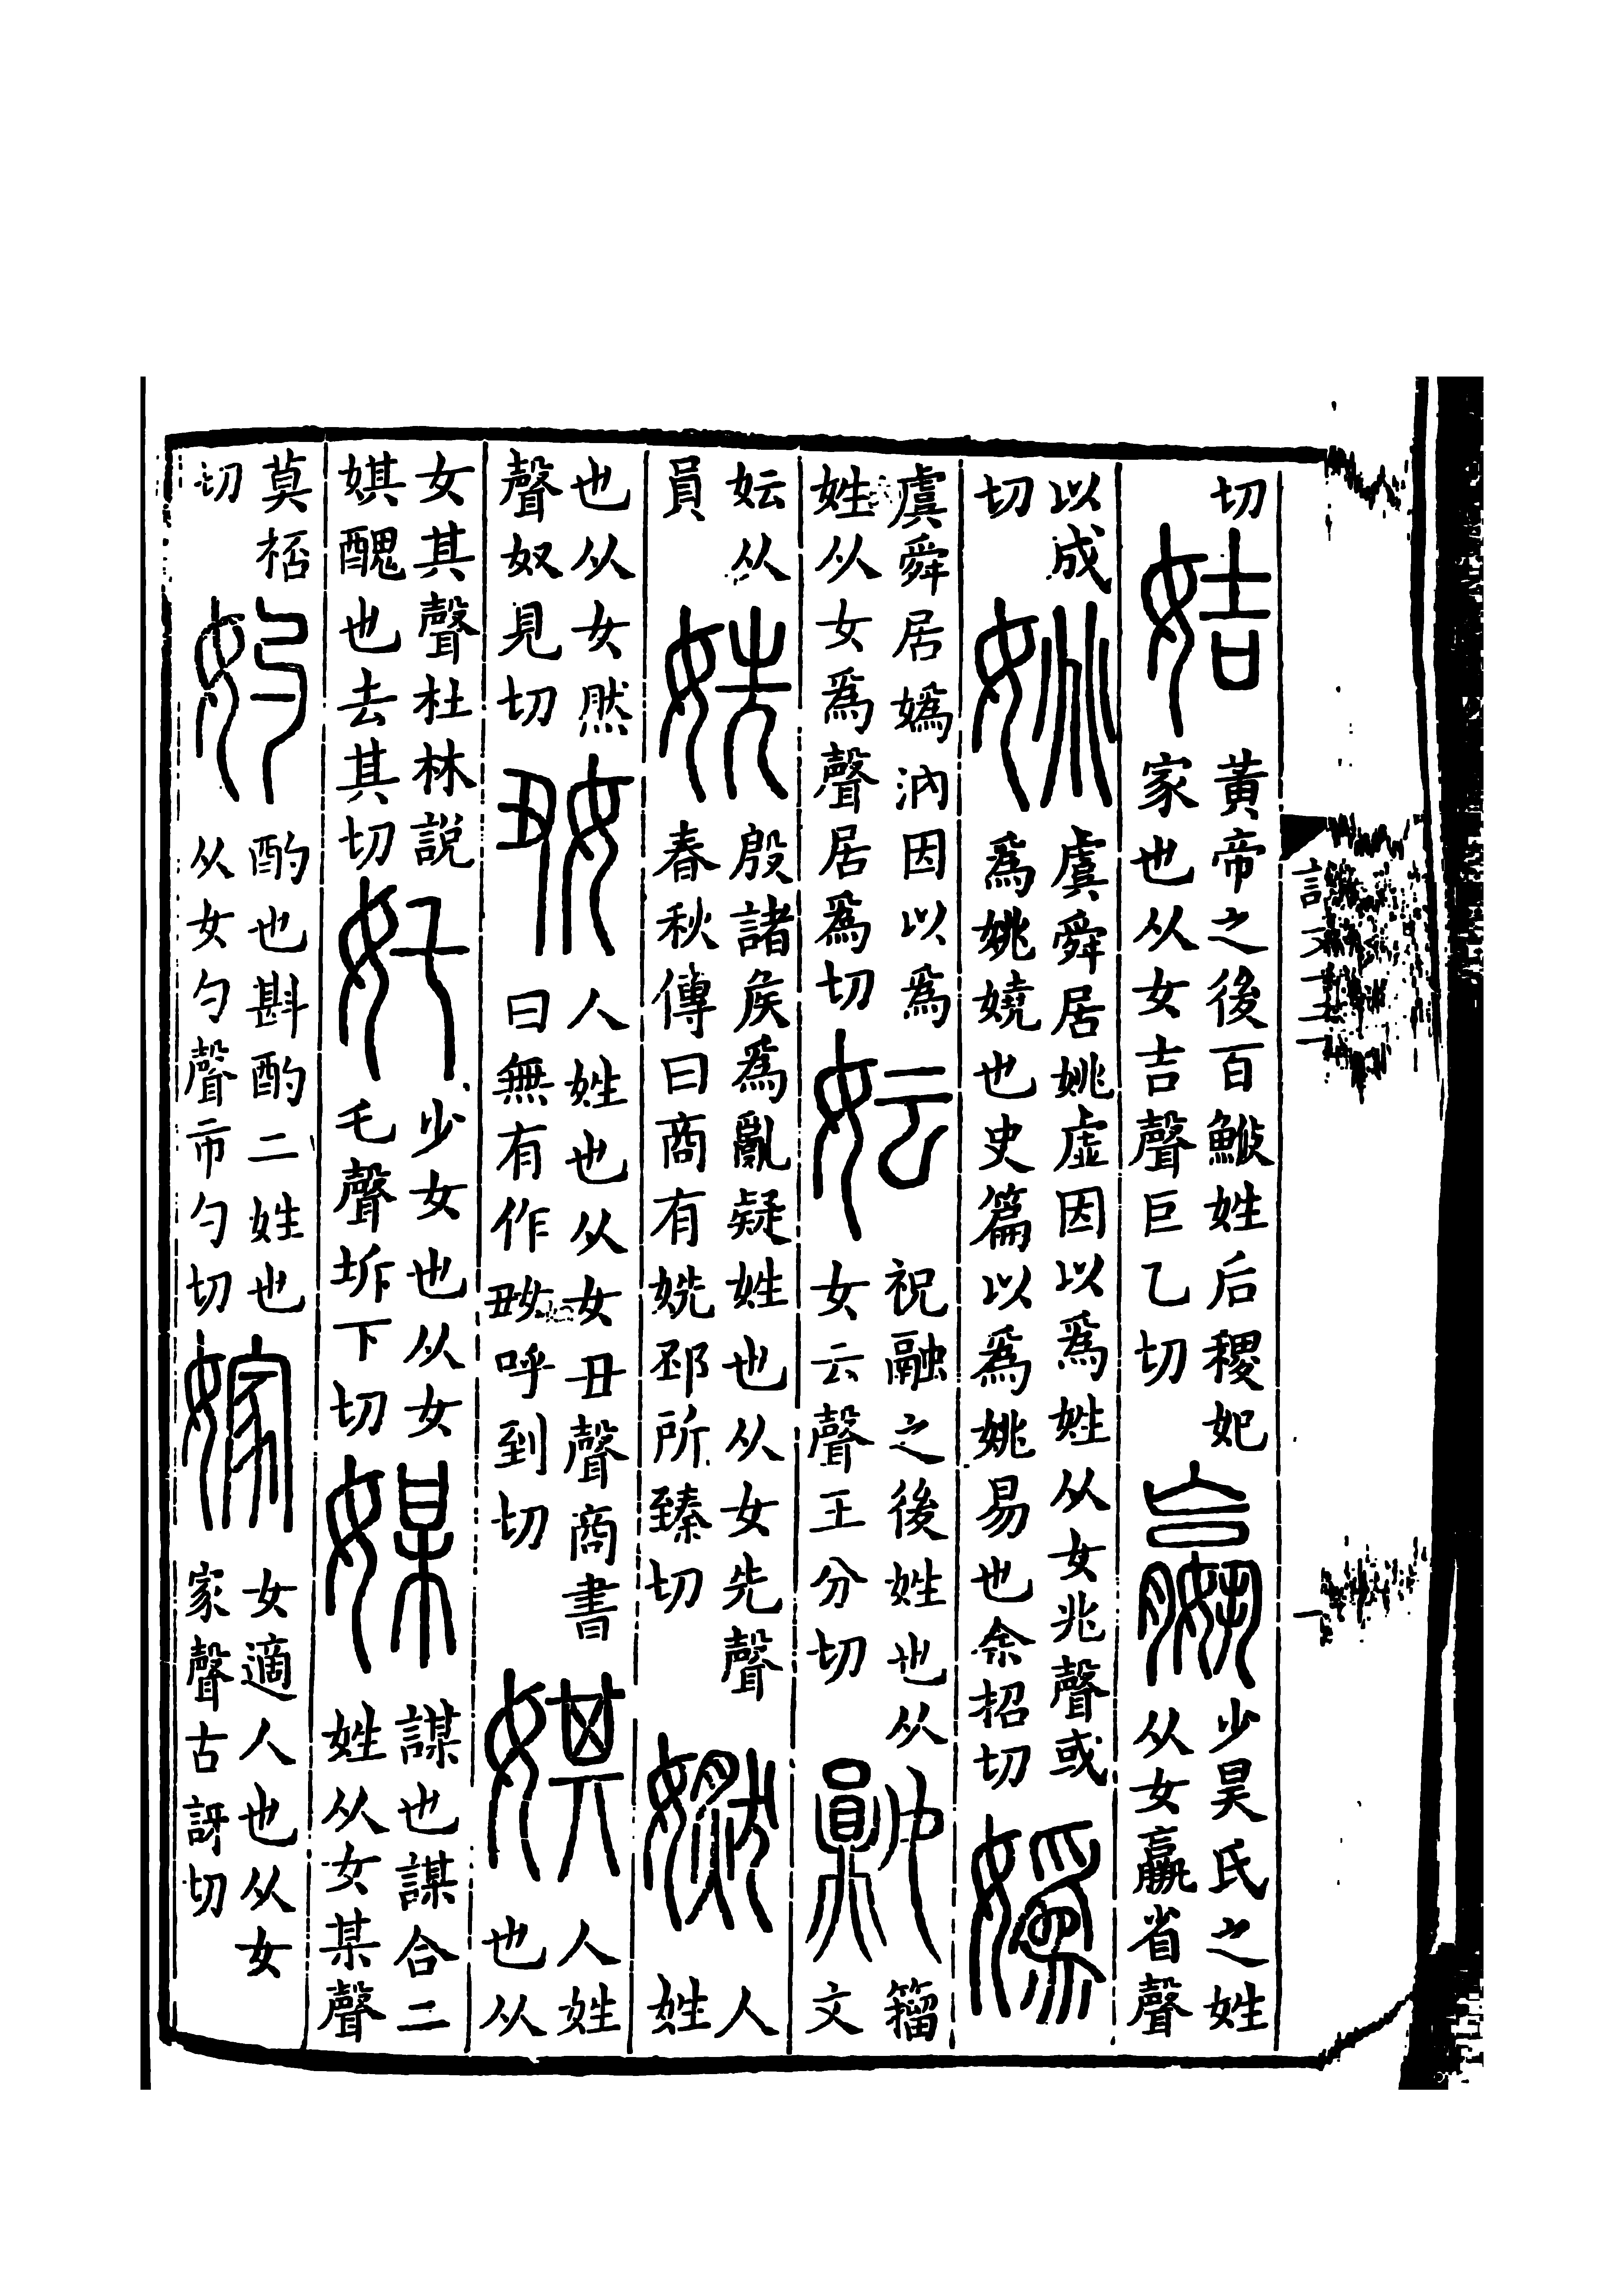 切姞黃帝之後百鮌姓后稷妃家也从女吉聲巨乙切嬴少昊氏之姓从女羸省聲
以成切姚虞舜居姚虛因以爲姓从女兆聲或爲姚嬈也史篇以爲姚易也余招切嬀
虞舜居嬀汭因以爲姓从女爲聲居爲切妘祝融之後姓也从女云聲王分切籒文
妘从員姺殷諸矦爲亂疑姓也从女先聲春秋傳曰商有姺邳所臻切㜣人姓
也从女然聲奴見切𡚽人姓也从女丑聲商書曰無有作𡚽呼到切娸人姓也从
女其聲杜林說娸醜也去其切奼少女也从女乇聲坼下切媒謀也謀合二姓从女某聲
莫桮切妁酌也斟酌二姓也从女勺聲市勺切嫁女適人也从女家聲古訝切